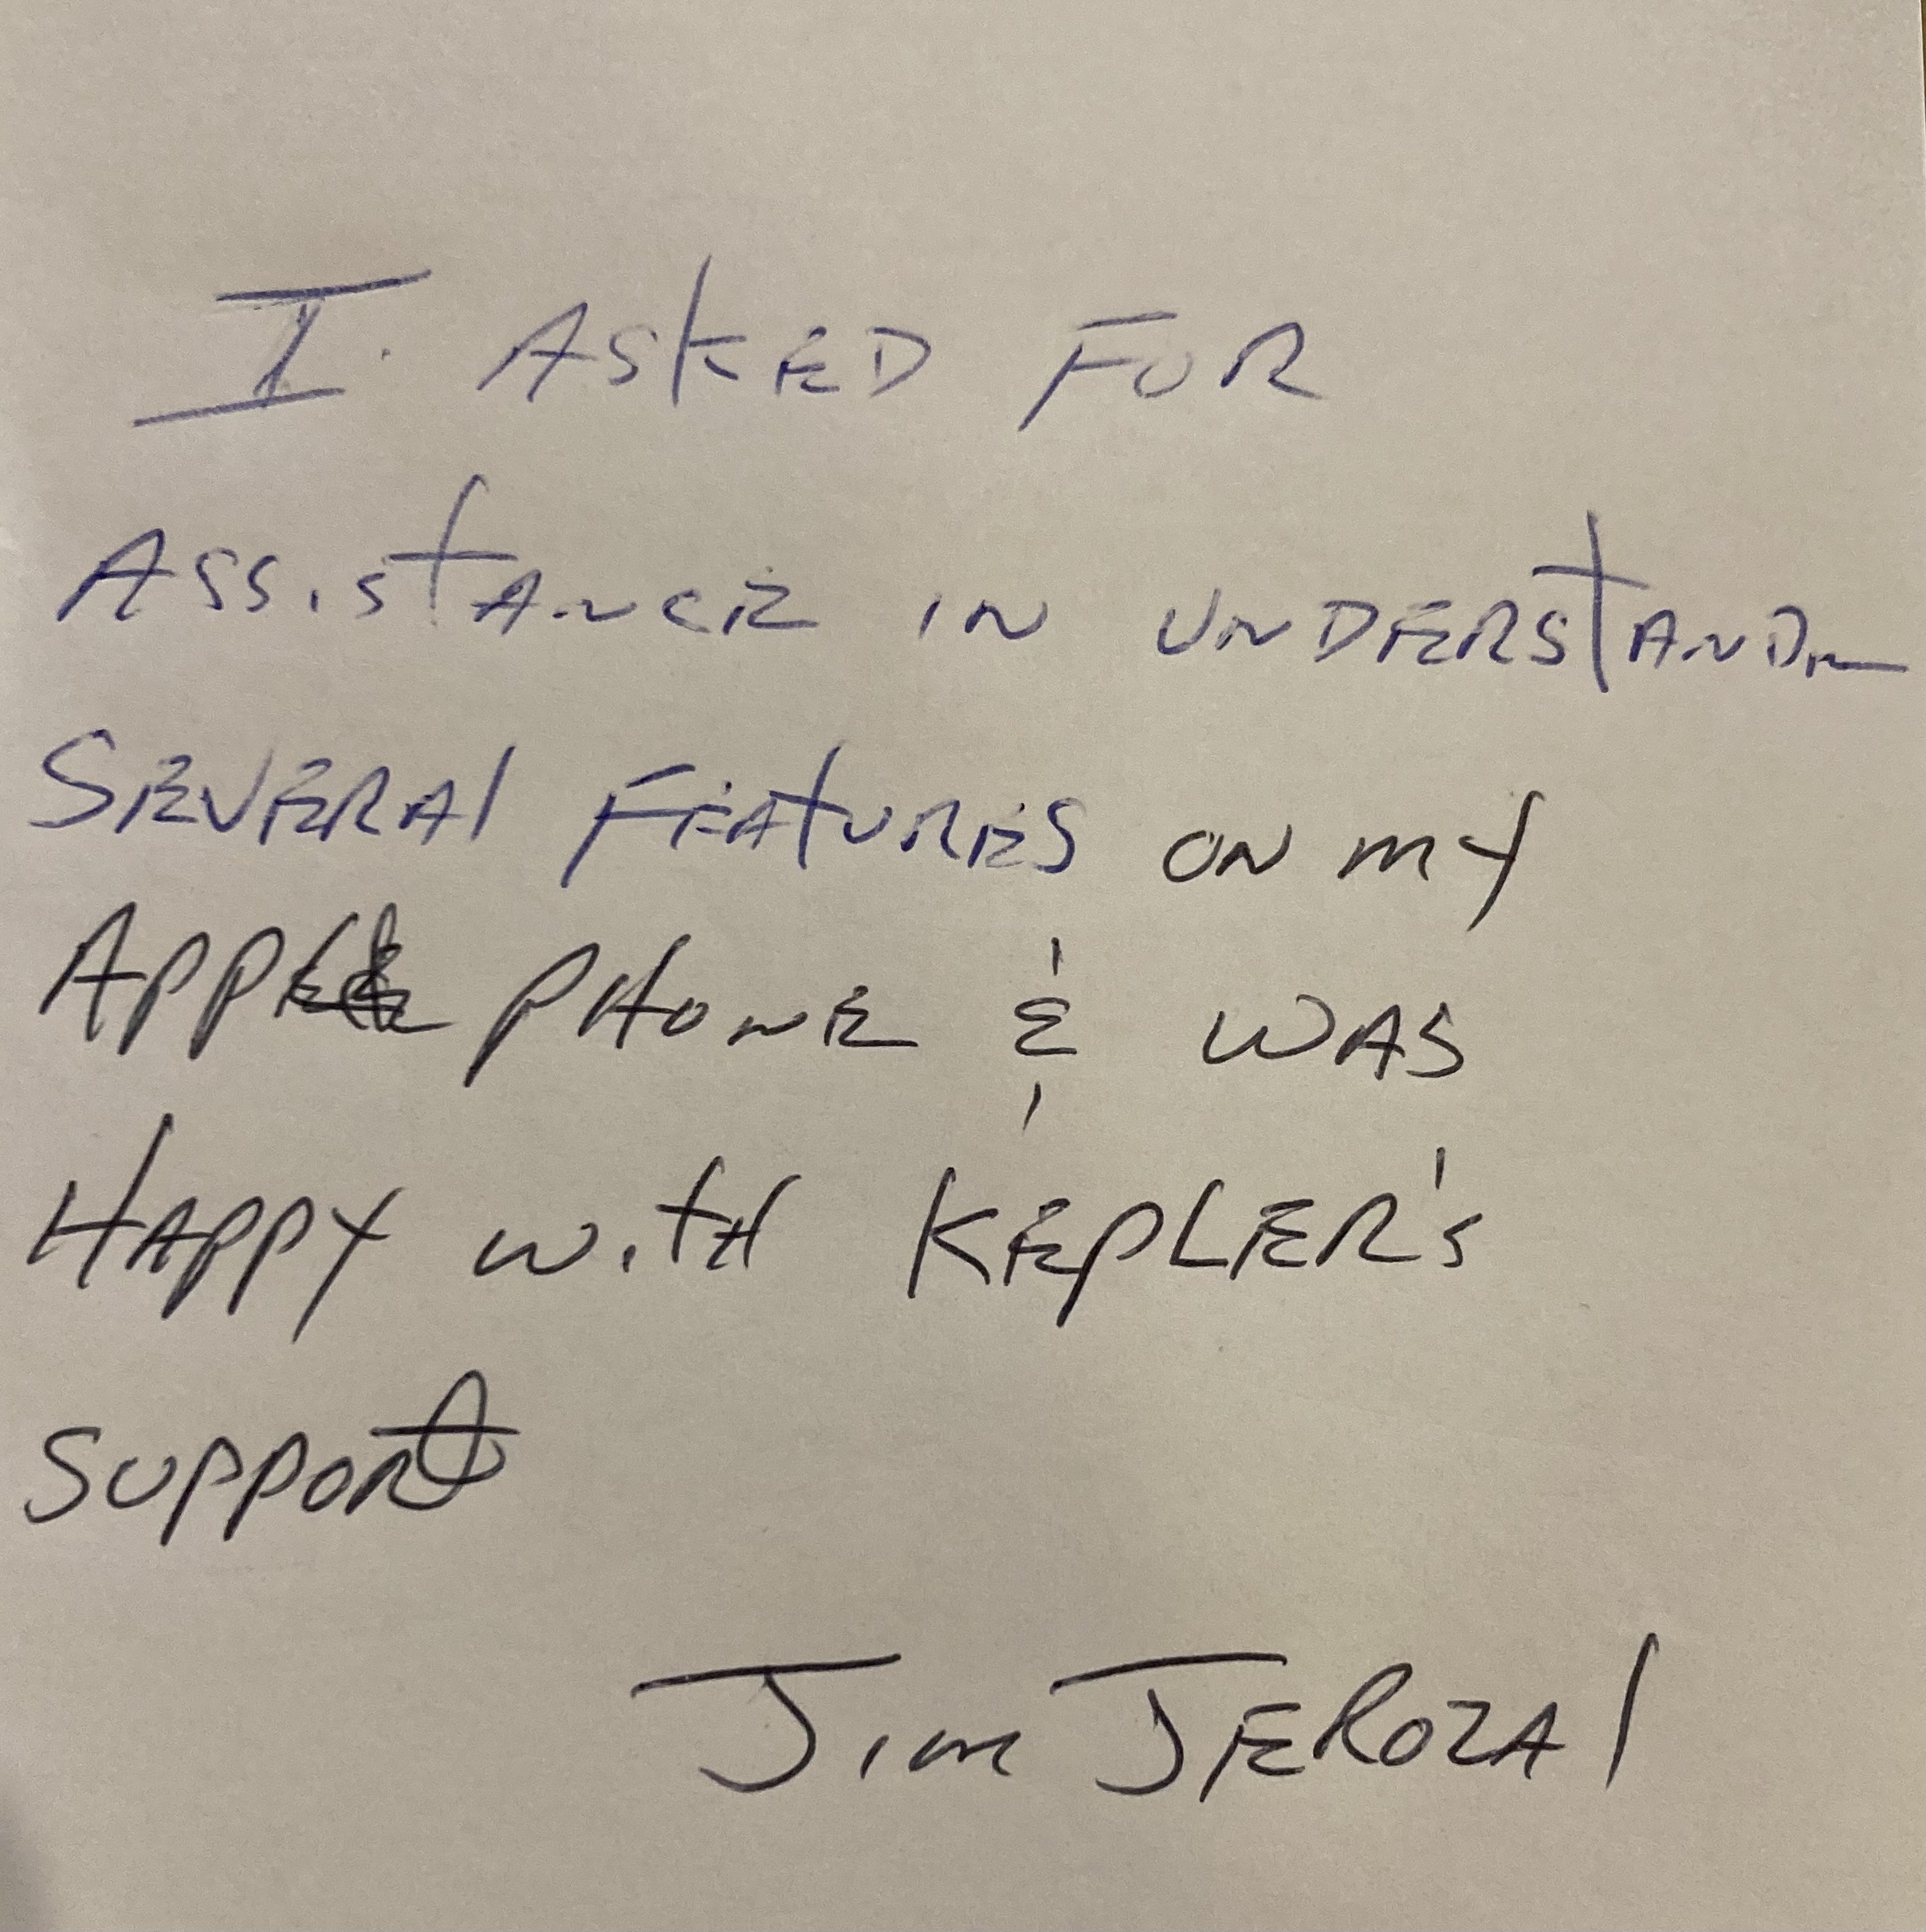 I. ASKED FOR
ASSISTANCE IN UNDERSTANDING
SEVERAL FEATURES ON MY
APPLE PHONE & WAS
HAPPY WITH KEPLER'S
SUPPORT
JIM JEROZAL